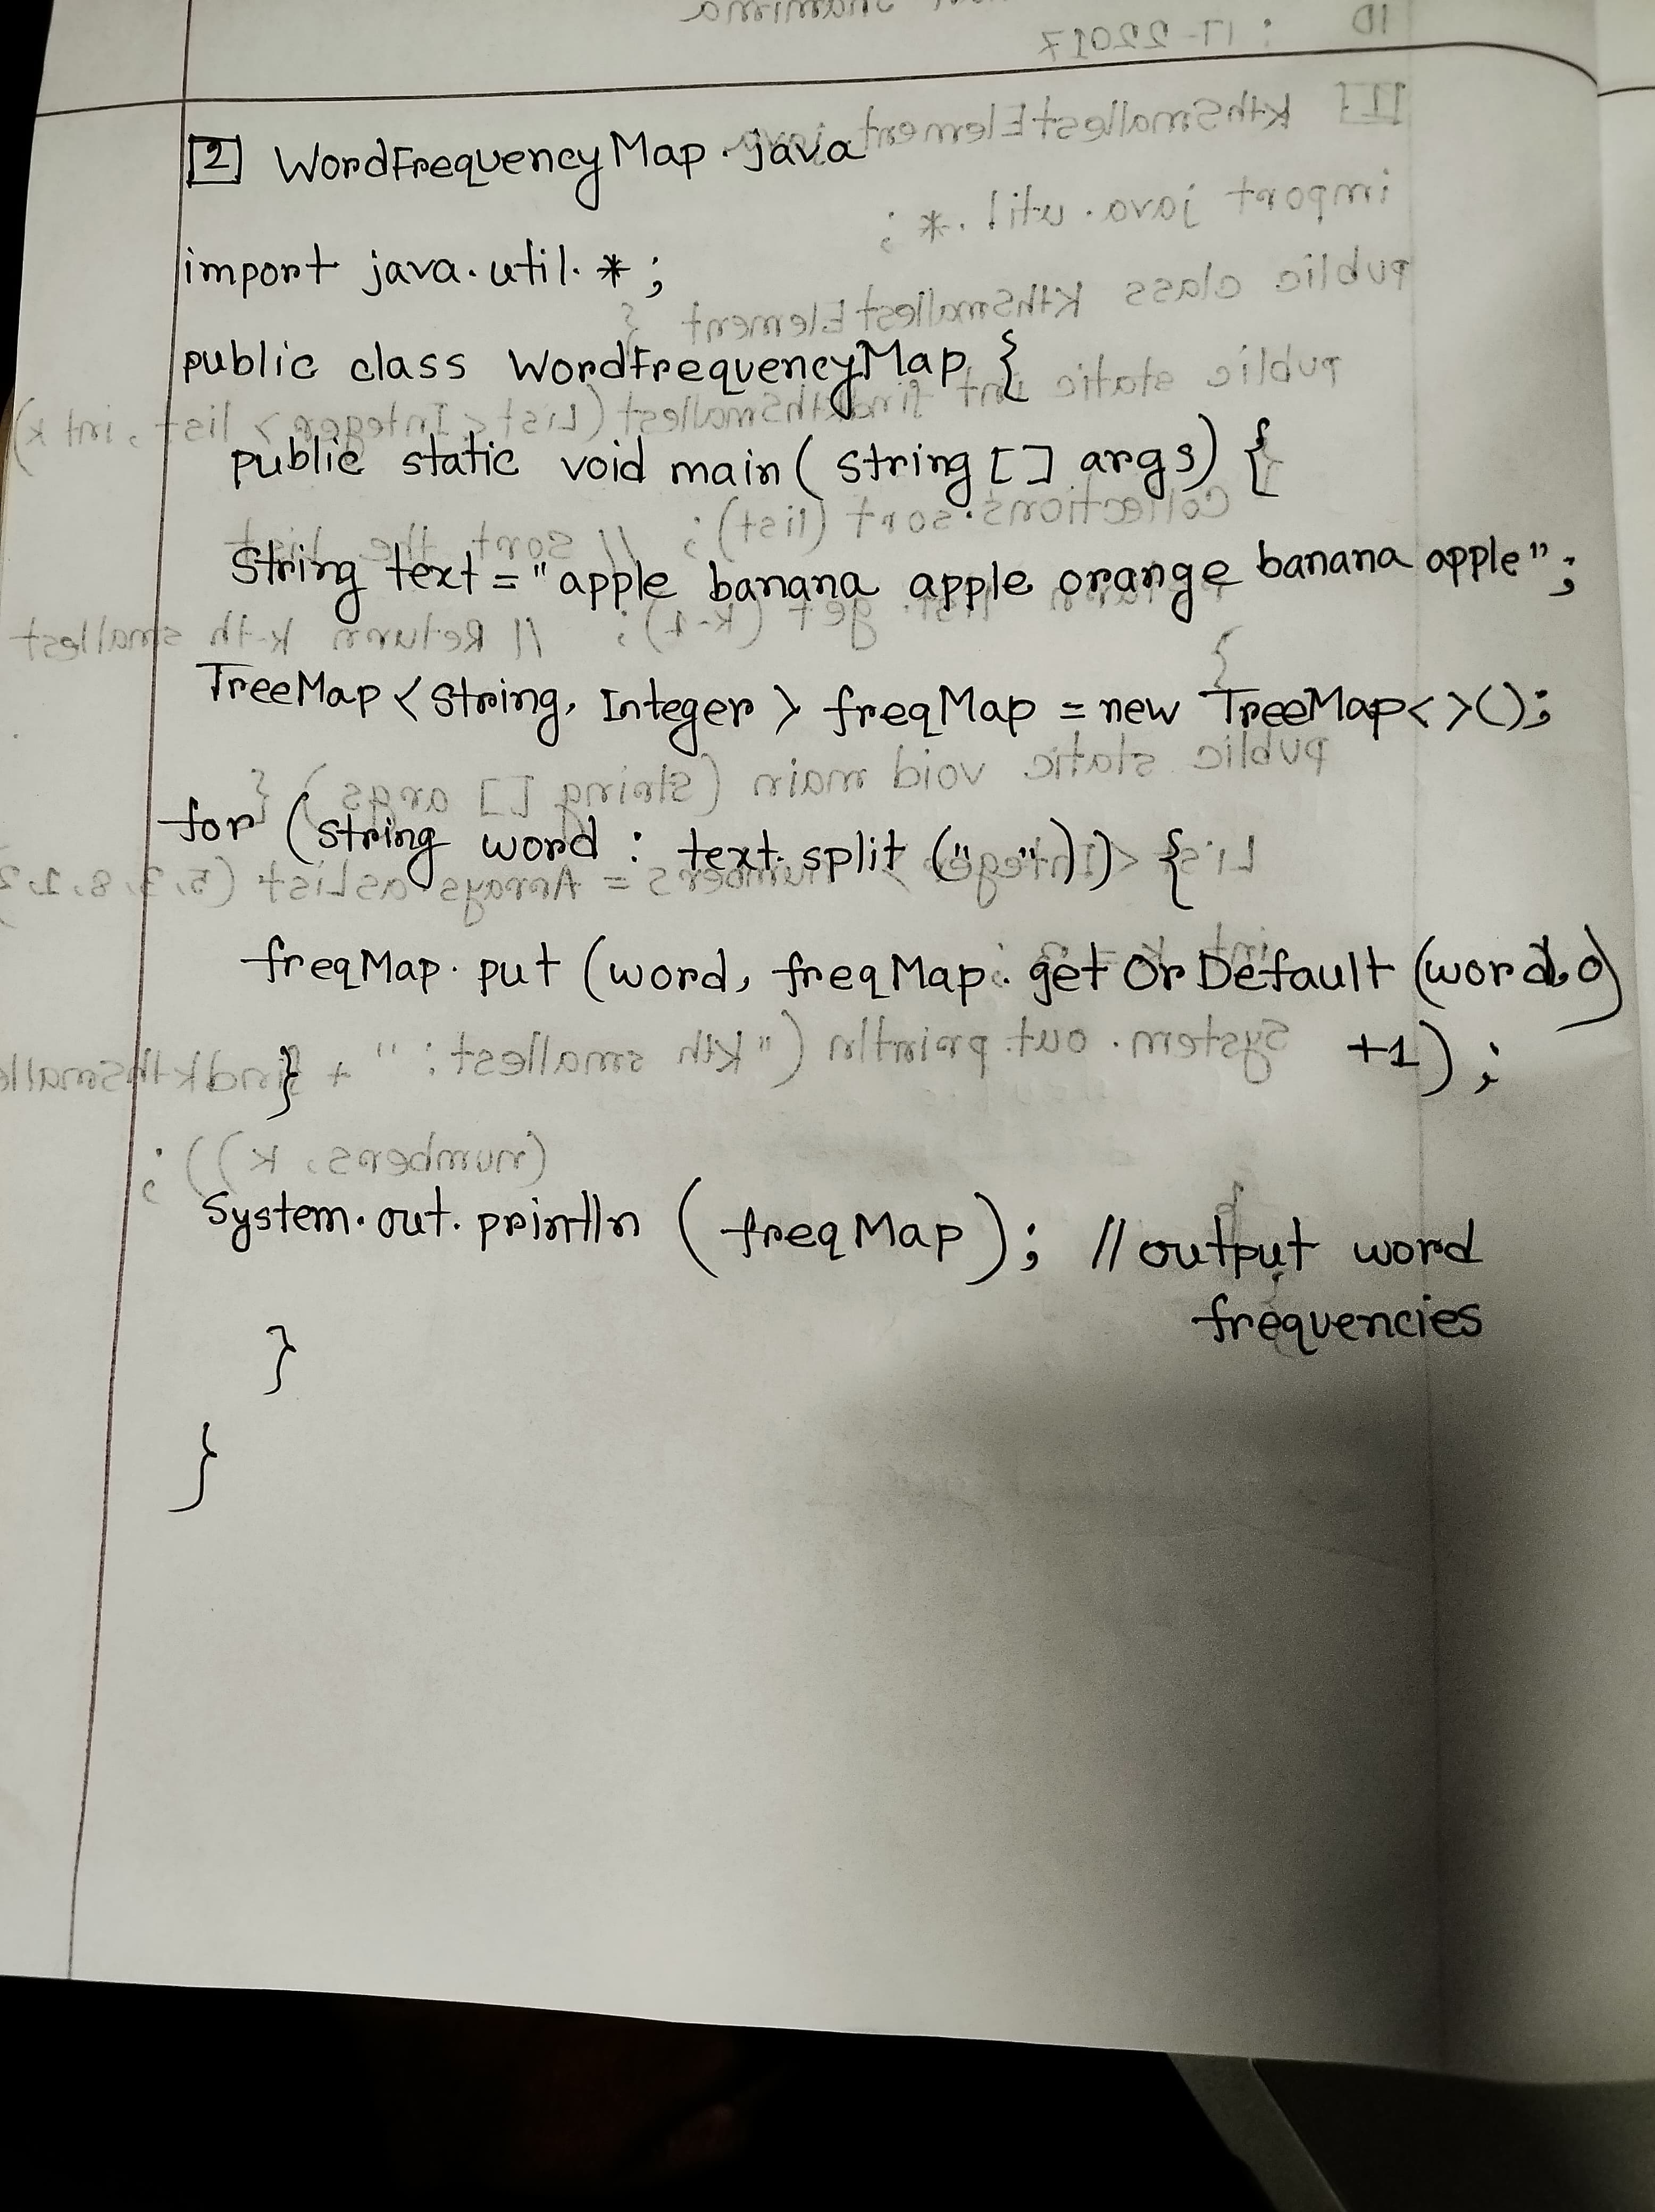 [2] WordFrequencyMap.java
import java.util.*;
public class WordFrequencyMap {
public static void main(string [] args) {
String text = "apple banana apple orange banana apple";
TreeMap<string, Integer> freqMap = new TreeMap<>();
for (string word : text.split(" ")) {
freqMap.put(word, freqMap.getOrDefault(word,0)
+1);
}
System.out.println(freqMap); //output word
frequencies
}
}